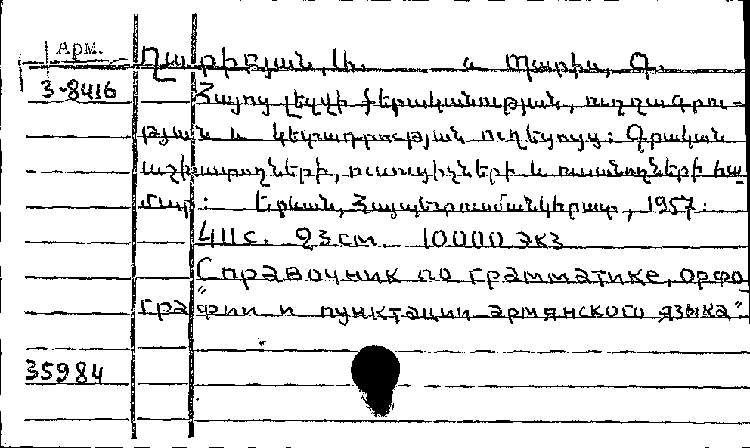 Арм.
Ղարիբյան, Ա. և Պարիս, Գ.
3-8416
Հայոց լեզվի քերականության, ուղղագրու-
թյան և կետադրության ուղեցույց: Գրական
աշխատողների, ուսուցիչների և ուսանողների հա
մար: Երևան, Հայպետուսմանկհրատ, 1957:
411с. 23см. 10000 экз
"Справочник по грамматике, орфо
графии и пунктации армянского языка".
35984